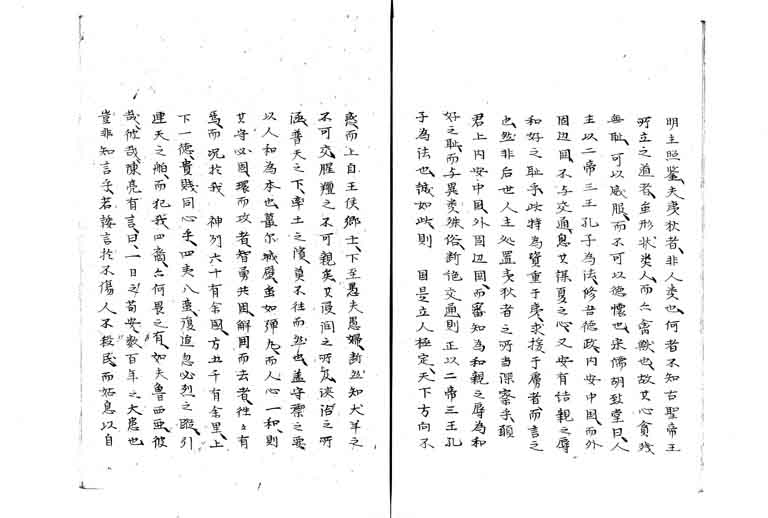 明主照鑒夫夷狄者、非人类也何者不知古聖帝王
所立之道者、虽形状类人而亦禽獣也、故其心貪残
無恥、可以威服、而不可以徳懐也、宋儒胡致堂曰、人
主以二帝三王孔子為法、修吾徳政、内安中国、而外
固辺国、不与交通、息其猾夏之心、又安有結親之辱
和好之恥乎、此特為資重于夷、求援于虜者而言之
也、然非后世人主処置夷狄者之所当深察乎、顧
君上内安中国、外固辺国、而審知為和親之辱為和
好之恥、而与異类殊俗断絶交通、則正以二帝三王孔
子為法也、誠如此則 国是立人極定、天下方向不
惑而上自王侯卿士、下至愚夫愚婦断然知犬羊之
不可交、腥羶之不可親矣、其浸润之所及、浹洽之所
涵、普天之下、率土之濱莫不往而然也、蓋守禦之要
以人和為本也、蕞尔城壁虽如弾丸、而人心一和、則
其守必固、環而攻者智勇共困、解囲而去者、往々有
焉、而况於我 神州六十有余国、方五千有余里、上
下一徳、貴賎同心乎、四夷八蛮、復追忽必烈之蹤、引
連天之舶、而犯我四裔、亦何畏之有、如夫魯西亜彼
哉、彼哉、陳亮有言曰、一日之苟安、数百年之大患也
豈非知言乎、若謾言於不傷人不殺民、而姑息以自